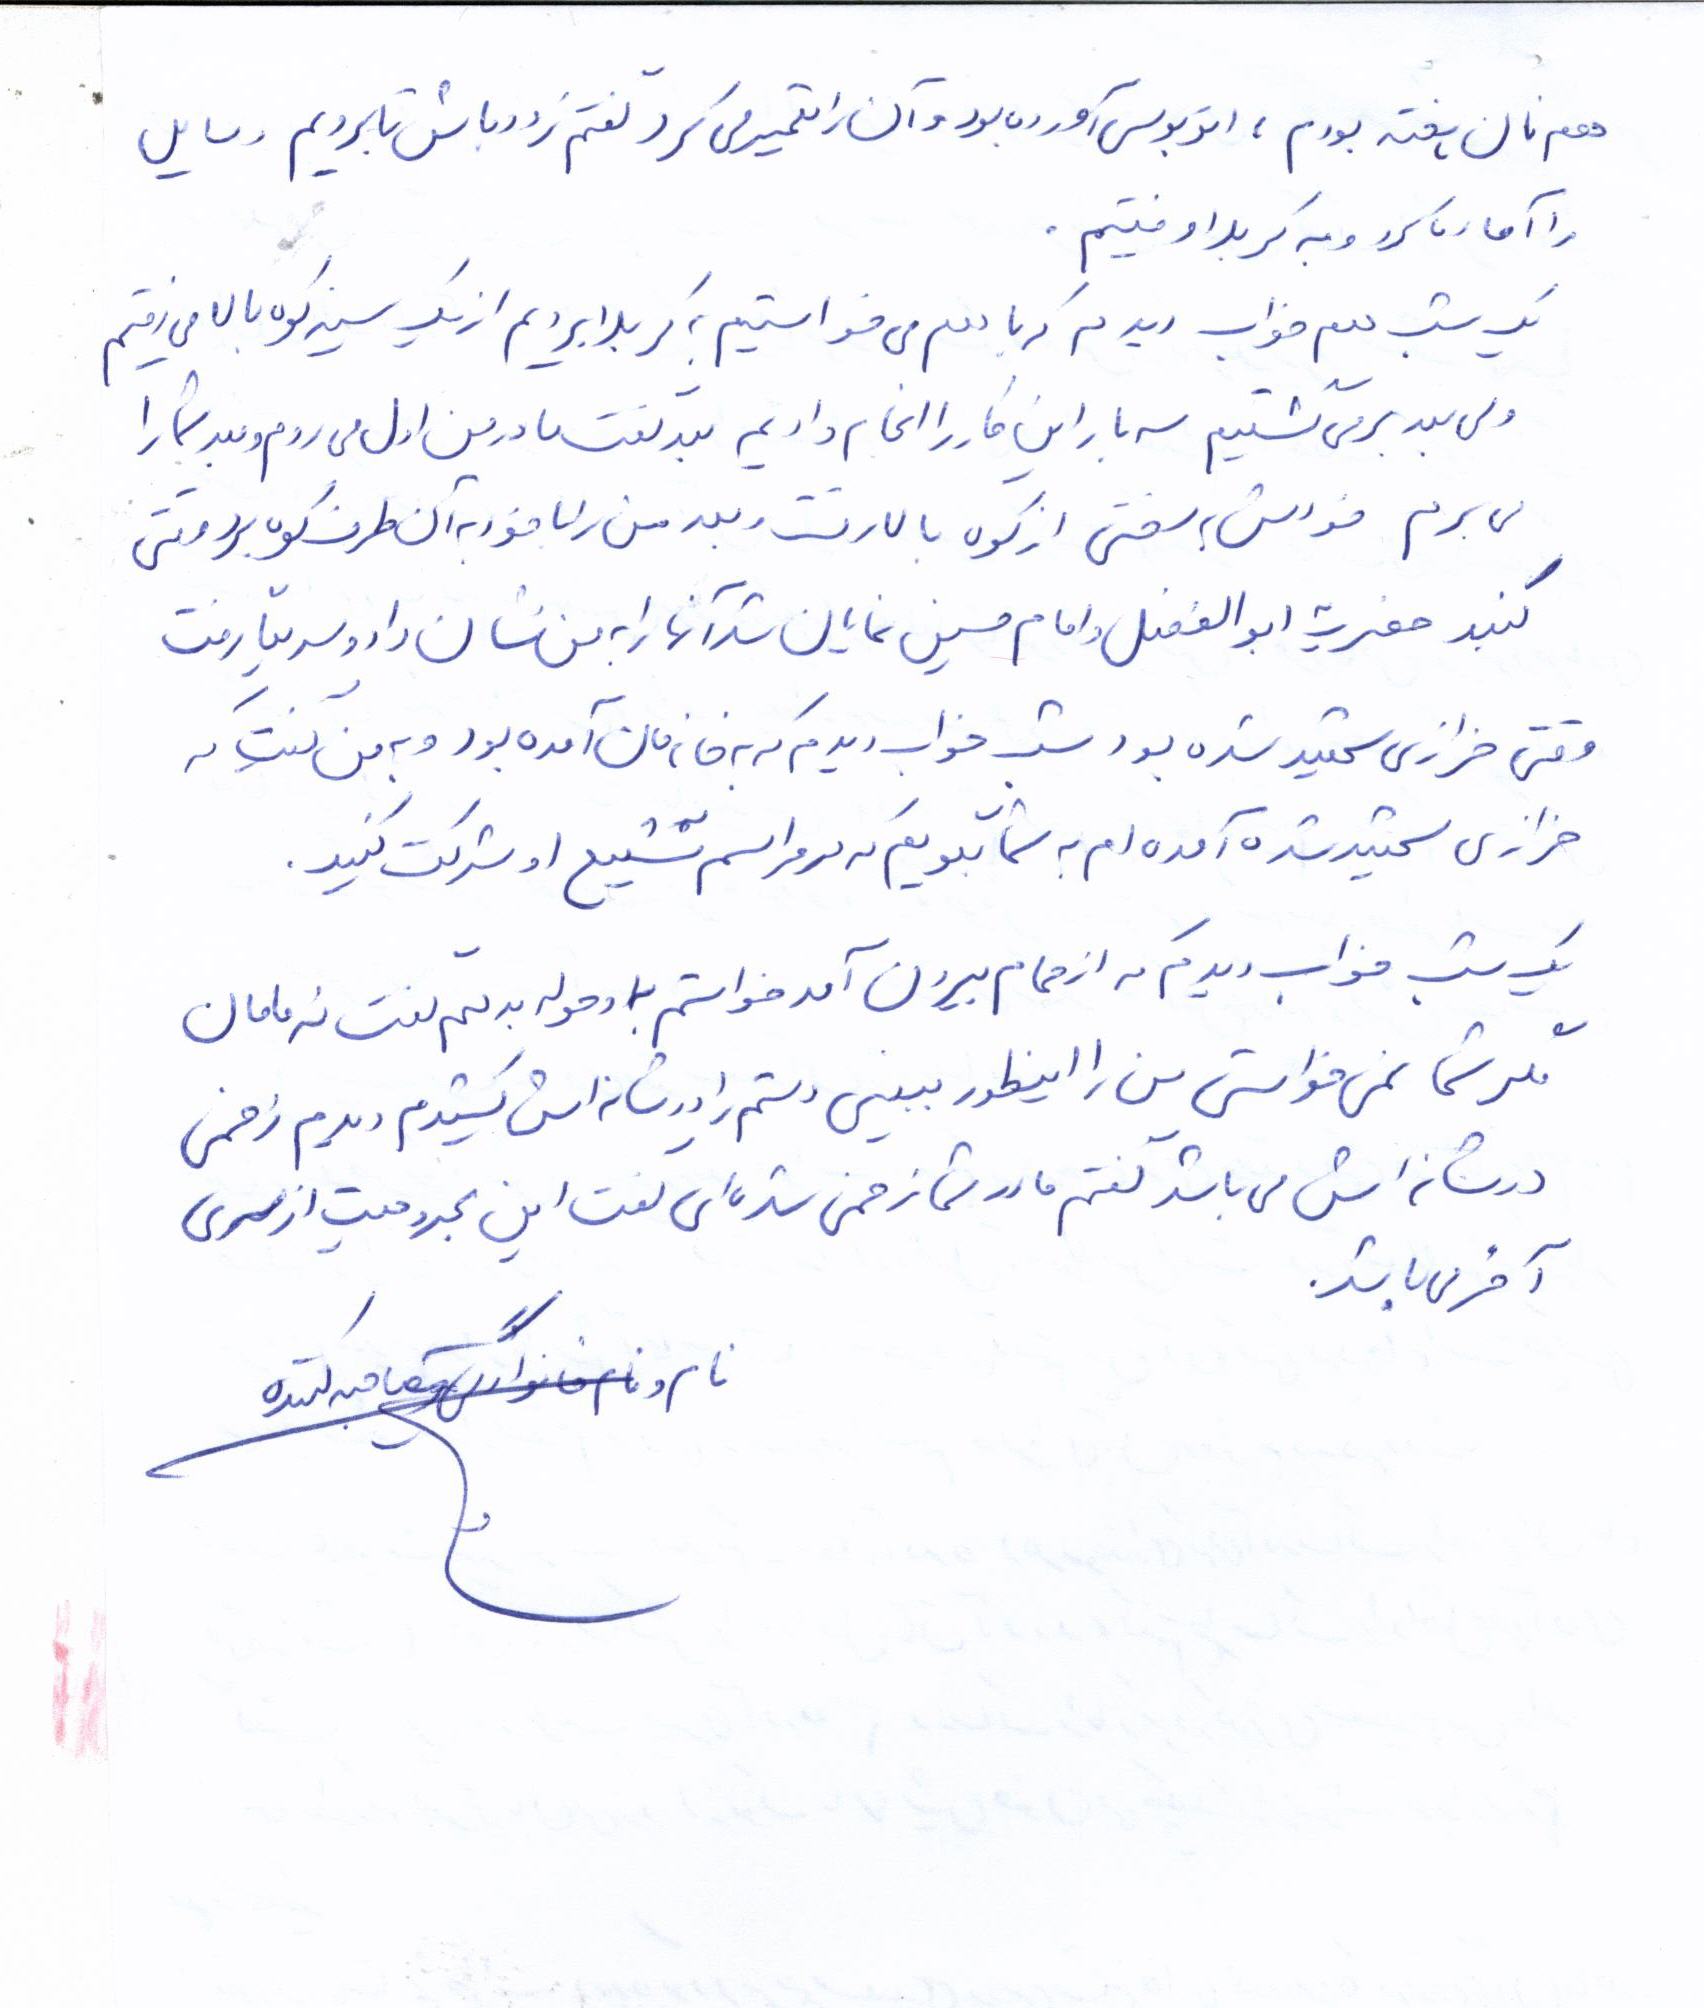 هم نان پخته بودم ، اتوبوس آورده بود و آن را تعمیر می کرد گفتم زود باش تا برویم وسایل
را آماده کرد و به کربلا رفتیم .
یک شب هم خواب دیدم که با هم می خواستیم به کربلا برویم از یک سینه کوه بالا می رفتیم
ولی بعد برمی گشتیم سه بار این کار را انجام دادیم بعد گفت مادر من اول می روم و بعد شما را
می برم خودش به سختی از کوه بالا رفت و بعد من را با خود به آن طرف کوه برد وقتی
گنبد حضرت ابوالفضل و امام حسین نمایان شد آنها را به من نشان داد و سریعاً رفت
وقتی خرازی شهید شده بود شب خواب دیدم که به خانه مان آمده بود و به من گفت که
خرازی شهید شده آمده ام به شما بگویم که در مراسم تشییع او شرکت کنید .
یک شب خواب دیدم که از حمام بیرون آمد خواستم حوله بدهم گفت نه مامان
مگر شما نمی خواستی من را اینطور ببینی دستم را در شانه اش کشیدم دیدم زخمی
در شانه اش می باشد گفتم مادر شما زخمی شده ای گفت این مجروحیت از سری
آخر می باشد .
نام و نام خانوادگی مصاحبه کننده